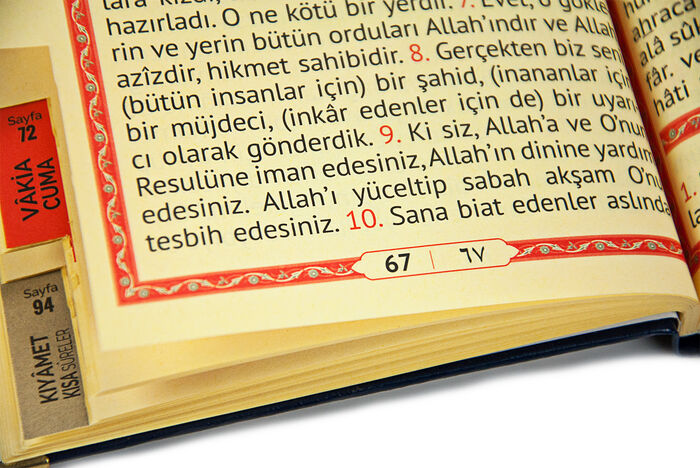 hazırladı. O ne kötü bir yerdir. 7. Evet, o gökle
rin ve yerin bütün orduları Allah'ındır ve Allah
azîzdir, hikmet sahibidir. 8. Gerçekten biz sen
(bütün insanlar için) bir şahid, (inananlar için
bir müjdeci, (inkâr edenler için de) bir uyarı
cı olarak gönderdik. 9. Ki siz, Allah'a ve O'nun
Resulüne iman edesiniz, Allah'ın dinine yardım
edesiniz. Allah'ı yüceltip sabah akşam O'nu
tesbih edesiniz. 10. Sana biat edenler aslında
67 | ٦٧
Sayfa
72
VÂKIA
CUMA
Sayfa
94
KIYÂMET
KISA SÛRELER
ahraca
alâ sû
fâr. ve
hâti
1.